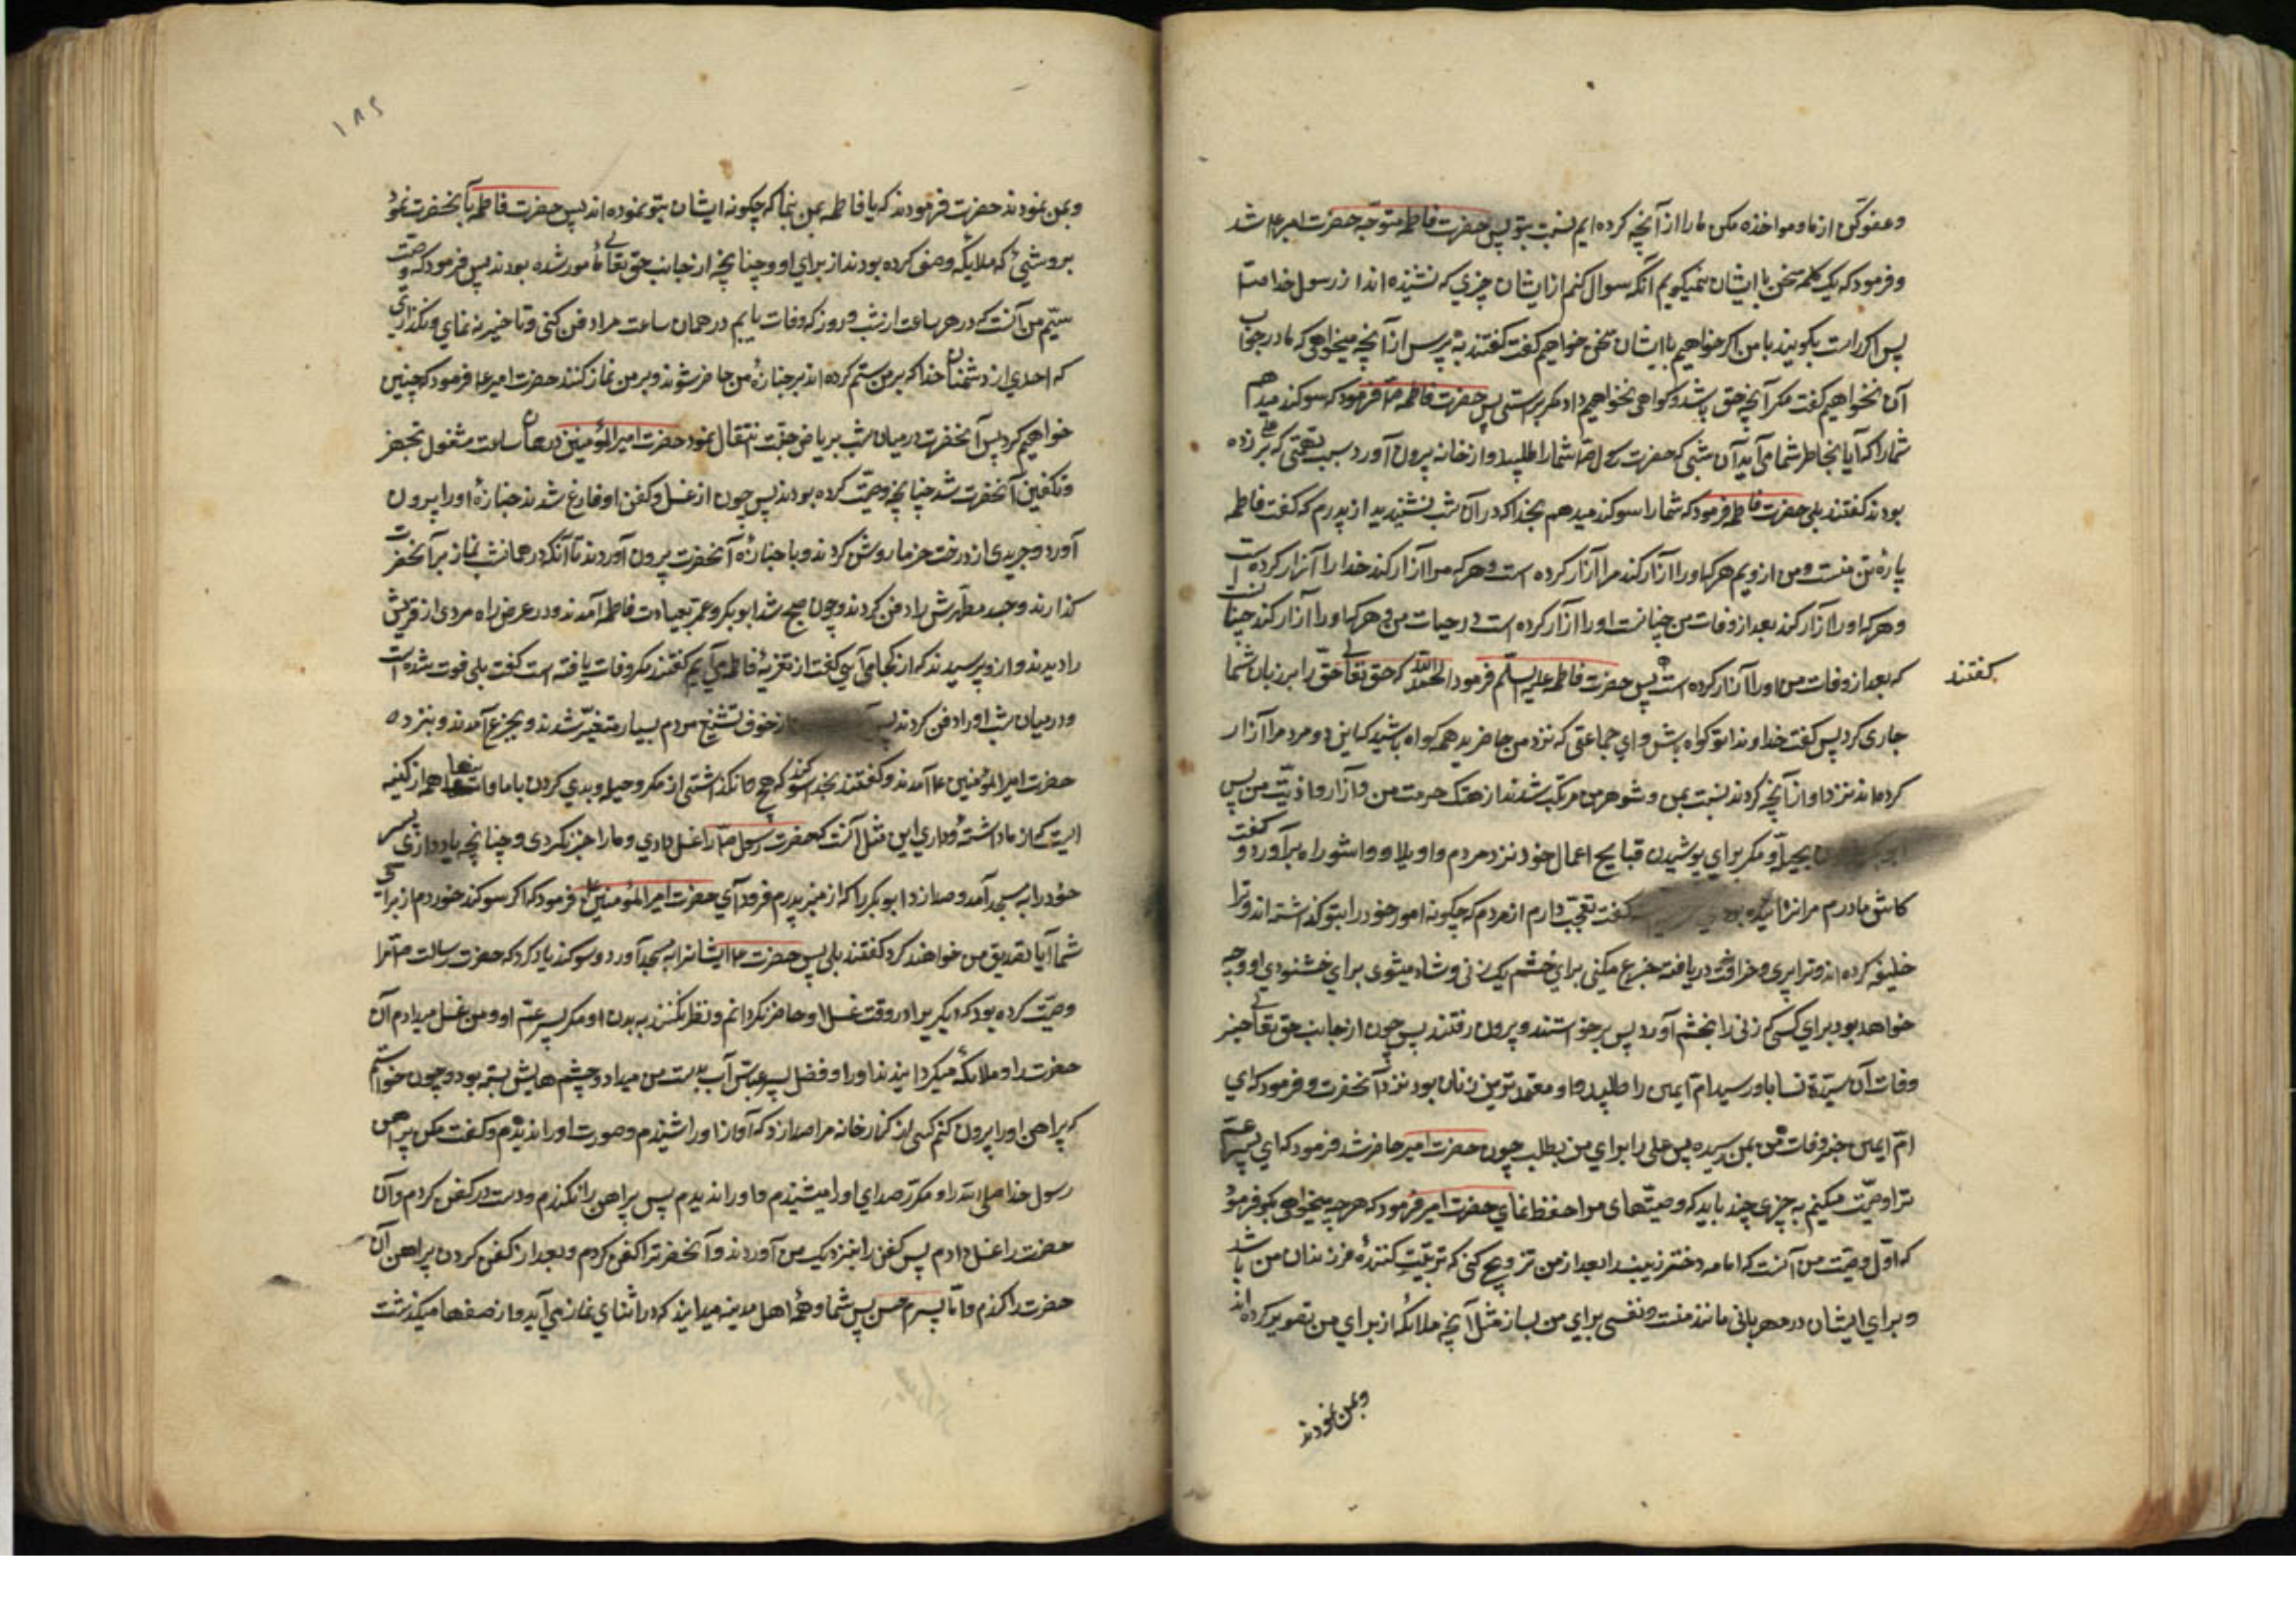 وعفو کن از ما و مواخذه مکن ما را از آنچه کرده ایم نسبت بتو پس حضرت فاطمه متوجّه حضرت امیر ع شد
و فرمود که یک کلمه سخن با ایشان نمیکویم تا آنکه سوال کنم از ایشان چیزی که شنیده اند از رسول خدا ص
پس اکر راست بکویند با من اکر خواهیم با ایشان سخن خواهیم کفت کفتند به پرس از آنچه میخواهی که ما در جواب
آن نخواهیم کفت مکر آنچه حق باشد و کواهی نخواهیم داد مکر براستی پس حضرت فاطمه ص فرمود که سوکند میدهم
شما را که آیا بخاطر شما می آید آن شبی که حضرت رسول ص شما را طلبید و از خانه بیرون آورد بسبب تهمتی که بر علی زده
بودند کفتند بلی حضرت فاطمه فرمود که شما را سوکند میدهم بخدا که در آن شب نشنیدید از پدرم که کفت فاطمه
پارهٔ تن منست و من از ویم هر که او را آزار کند مرا آزار کرده است و هر که مرا آزار کند خدا را آزار کرده است
و هر که او را آزار کند بعد از وفات من چنانست او را آزار کرده است در حیات من و هر که او را آزار کند چنانست
که بعد از وفات من او را آزار کرده است پس حضرت فاطمه علیه السلم فرمود الحمد لله که حق تعالی حقّ را بر زبان شما
کفتند
جاری کرد پس کفت خداوندا تو کواه باش و ای جماعتی که نزد من حاضرید همه کواه باشید که این دو مرد مرا آزار
کرده اند نزد وازآنچه کردند نسبت بمن و شوهر من مرتکب شدند از هتک حرمت من و آزار و اذیّت من پس
بیحیا و مکر برای پوشیدن قبایح اعمال خود نزد مردم واویلا و وا ثبوراه برآورد و کفت
کاش مادرم مرا نزائیده بودی کفت تعجّب دارم از مردم که چکونه امور خود را بتو کذاشته اند و ترا
خلیفه کرده اند و ترا پیری و خرافت دریافته جزع میکنی برای خشم یک زنی و شاد میشوی برای خشنودی او و چه
خواهد بود برای کسی که زنی را بخشم آورد پس برخواستند و بیرون رفتند پس چون از جانب حق تعالی خبر
وفات آن سیّدهٔ نسا باو رسید ام ایمن را طلبید و او معتمدترین زنان بود نزد آنحضرت و فرمود که ای
امّ ایمن خبر وفات من بمن رسیده پس علی را برای من بطلب چون حضرت امیر حاضر شد فرمود که ای پسر عم
ترا وصیّت میکنم به چیزی چند باید که وصیّتهای مرا حفظ نمای حضرت امیر فرمود که هر چه میخواهی بکو فرمود
که اوّل وصیّت من آنست که امامه دختر زینب را بعد از من تزویج کنی که تربیّت کنندهٔ فرزندان من باشد
و برای ایشان در مهربانی مانند منست و نعشی برای من بساز مثل آنچه ملائکه از برای من تصویر کرده اند
وبمن نمودند
۱۸۲
وبمن نمودند حضرت فرمودند که یا فاطمه بمن بنما که چکونه ایشان بتو نموده اند پس حضرت فاطمه بآنحضرت نمود
بروشنی که ملایکه وصف کرده بودند از برای او و چنانچه از جانب حق تعالی مامور شده بودند پس فرمود که وصیّت
سیّم من آنست که در هر ساعت از شب و روز که وفات یابم در همان ساعت مرا دفن کنی و تاخیر نه نمای و نکذاری
که احدی از دشمنان خدا که بر من ستم کرده اند بر جنازهٔ من حاضر شوند و بر من نماز کنند حضرت امیر ع فرمود که چنین
خواهم کرد پس آنحضرت در میان شب بریاض جنّت انتقال نمود حضرت امیر المؤمنین در همان ساعت مشغول تجهیز
و تکفین آنحضرت شد چنانچه وصیّت کرده بودند پس چون از غسل و کفن او فارغ شدند جنازهٔ او را بیرون
آورد و جریدی از درخت خرما روشن کردند و با جنازه آنحضرت بیرون آوردند تا آنکه در همانشب نماز بر آنحضرت
کذارند و جسد مطهّرش را دفن کردند و چون صبح شد ابوبکر و عمر بعیادت فاطمه آمدند و در عرض راه مردی از قریش
را دیدند و ازو پرسیدند که از کجا می آیی کفت از تعزیهٔ فاطمه می آیم کفتند مکر وفات یافته است کفت بلی فوت شده است
و در میان شب او را دفن کردند از خوف تشنیع مردم بسیار متغیّر شدند و بجزع آمدند و بنزد
حضرت امیر المؤمنین ع آمدند و کفتند بخدا سوکند که هیچ فرو نکذاشتی از مکر و حیله و بدی کردن با ما و اینها همه از کینه
ایست که از ما داشتهٔ و داری این مثل آنست که حضرت رسول ص را غسل دادی و ما را خبر نکردی و چنانچه یاد دادی پسر
خود را به مسجد آمد و صدا زد ابوبکر را که از منبر پدرم فرود آی حضرت امیر المؤمنین ع فرمود که اکر سوکند خوردم از برای
شما آیا تصدیق من خواهند کرد کفتند بلی پس حضرت ع ایشانرا به مسجد آورد و سوکند یاد کرد که حضرت رسالت ص مرا
وصیّت کرده بود که دیکریرا در وقت غسل او حاضر نکردانم و نظر نکنند به بدن او مکر پسر عمّ او و من غسل میدادم آن
حضرت را و ملائکه میکردانیدند او را و فضل پسر عباس آب بدست من میداد و چشم هایش بسته بود و چون خواستم
که پیراهن او را بیرون کنم کسی از کنار خانه مرا صدا زد که آواز او را شنیدم و صورت او را ندیدم و کفت مکن پیراهن
رسول خدا صلی الله را و مکرّر صدای او را میشنیدم و او را ندیدم پس پیراهن را نکندم و دست در کفن کردم و آن
حضرت را غسل دادم پس کفن را بنزدیک من آوردند و آنحضرترا کفن کردم و بعد از کفن کردن پیراهن آن
حضرت را کندم و امّا پسرم حسن پس شما و همهٔ اهل مدینه میدانید که در اثنای نماز می آید و از صفها میکذشت